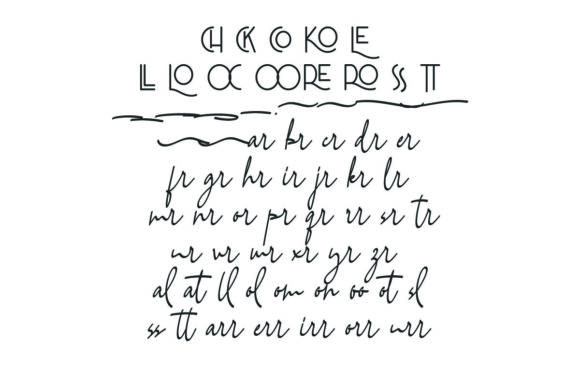 CH CK CO KO LE
LL LO OC OO RE RO SS TT
ar br cr dr er
fr gr hr ir jr kr lr
mr nr or pr qr rr sr tr
ur vr wr xr yr zr
al at ll ol om on oo ot sl
ss tt arr err irr orr urr